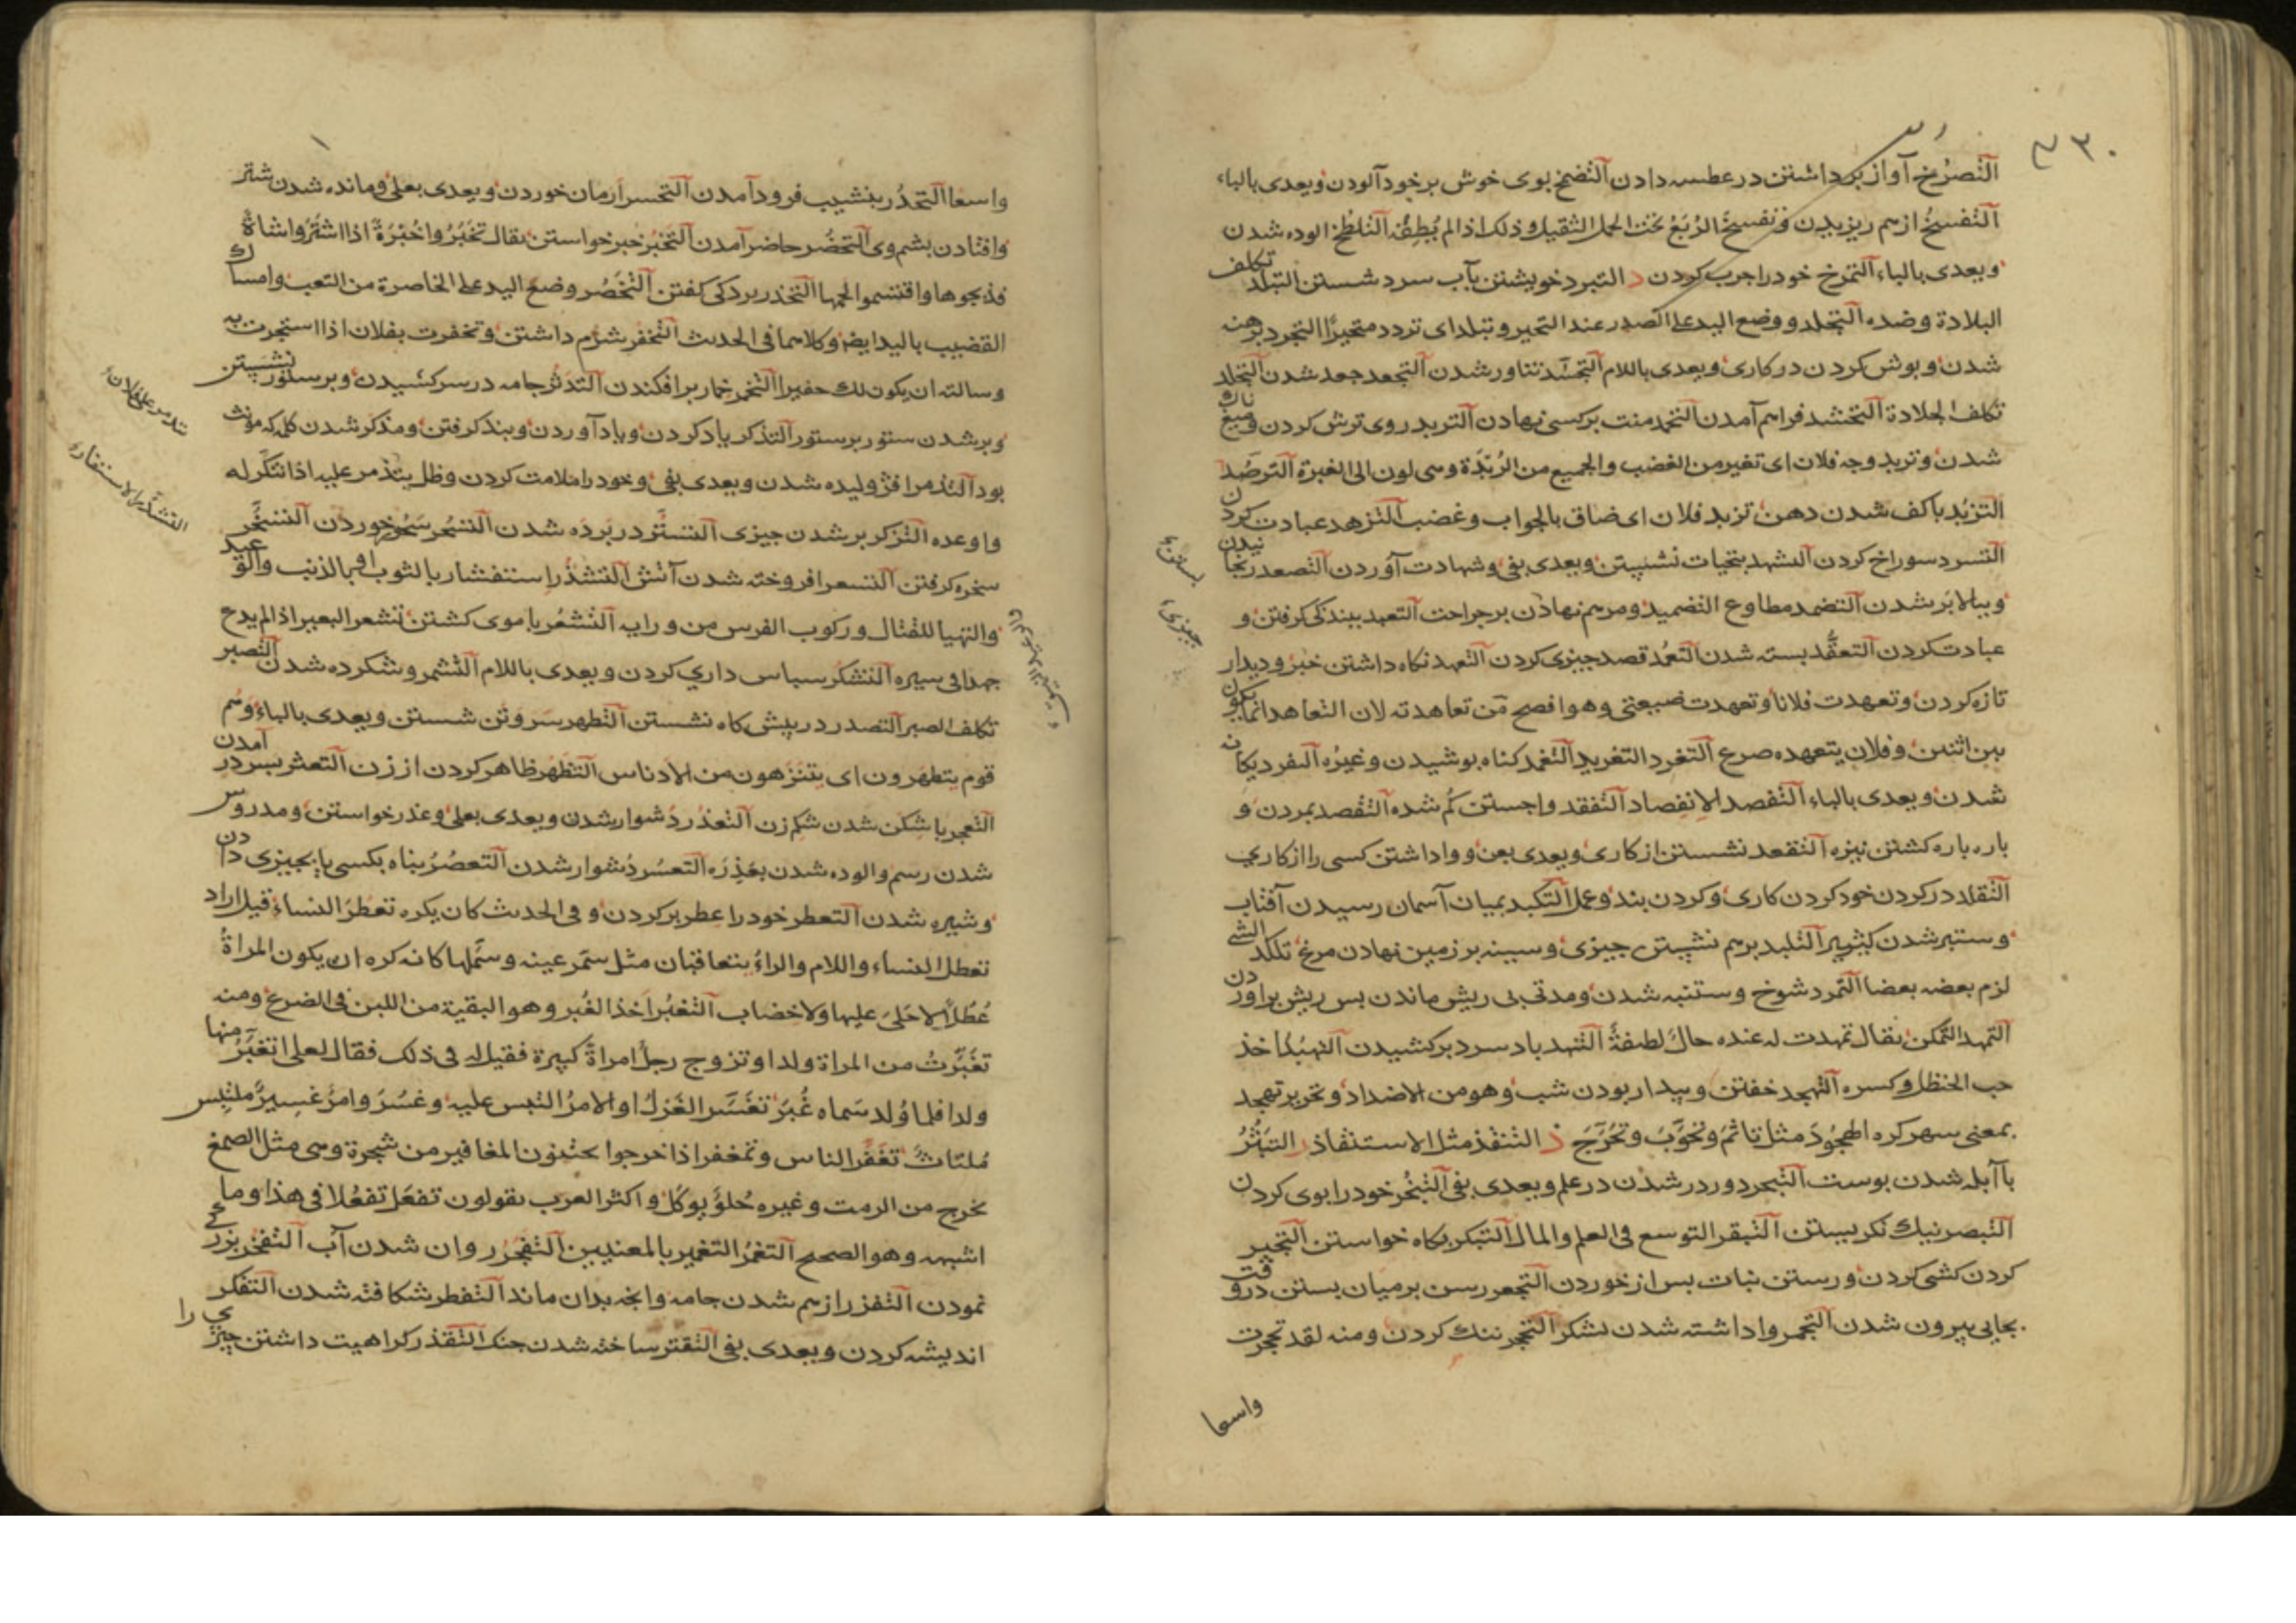 التصرّخ آواز برداشتن در عطسه دادن التضمخ بوی خوش بر خود آلودن ویعدی بالباء
التفسخ ازهم ریزیدن وتفسخ الرُبَع تحت الحمل الثقیل وذلک اذا لم یُطِقْه التلطخ الوده شدن
ویعدی بالباء التمرخ خود را چرب کردن د التبرد خویشتن بآب سرد شستن التبلد تکلف
البلادة وضده التجلد ووضع الید علی الصدر عند التحیر وتبلد ای تردد متحیرًا التجرد برهنه
شدن وبوش کردن در کاری ویعدی باللام التجسّد تناور شدن التجعد جعد شدن التجلد
تکلف الجلادة التحشد فراهم آمدن التحمد منت برکسی نهادن التربد روی ترش کردن ومیغ ناک
شدن وتربد وجه فلان ای تغیر من الغضب والجمیع من الرُبْدَة وهی لون الی الغبرة الترصُد
التزبُد با کف شدن دهن تزبد فلان ای ضاق بالجواب وغضب التزهد عبادت کردن
التسرد سوراخ کردن التشهد بتحیات نشستن ویعدی بفی وشهادت آوردن التصعد رنجانیدن
وببالا بر شدن التضمد مطاوع التضمید ومرهم نهادن بر جراحت التعبد ببندکی کرفتن و
عبادت کردن التعقُّد بسته شدن التعمُد قصد چیزی کردن التعهد نکاه داشتن خبر ودیدار
تازه کردن وتعهدت فلانا وتعهدت ضیعتی وهو افصح من تعاهدته لان التعاهد انما یکون
بین اثنین وفلان یتعهده صرع التغرد التغرید التغمد کناه بوشیدن وغیره التفرد یکانه
شدن ویعدی بالباء التفصد الانفصاد التفقد واجستن کم شده التقصد بمردن و
باره باره کشتن نیزه التقعد نشستن از کاری ویعدی بعن وواداشتن کسی را از کاری
التقلد در کردن خود کردن کاری وکردن بند وعمل التکبد بمیان آسمان رسیدن آفتاب
وستبر شدن کثیر التلبد برهم نشستن چیزی وسینه بر زمین نهادن مرغ تلکد الشی
لزم بعضه بعضا التمرد شوخ وستنبه شدن ومدتی بی ریش ماندن بس ریش براوردن
التمهد التمکن یقال تمهدت له عنده حال لطیفةٌ التنهد باد سرد برکشیدن التهبُد اخذ
حب الحنظل وکسره التهجد خفتن وبیدار بودن شب وهو من الاضداد وتحریر تهجد
بمعنی سهر کره الهجُودَ مثل تاثمَ وتحوَّبَ وتحرَّجَ ذ التنقذ مثل الاستنقاذ ر التبَثُّرُ
با آبله شدن بوست التبحر دور در شدن در علم ویعدی بفی التبخُر خود را بوی کردن
التبصر نیک نکریستن التبقر التوسع فی العلم والمال التبکر بکاه خواستن التجبر
کردن کشی کردن ورستن نبات بس از خوردن التجعر رسن بر میان بستن در وقت
بجایی بیرون شدن التجمر واداشته شدن لشکر التحجر تنک کردن ومنه لقد تحجرت
واسعا
واسعا التحدُر بنشیب فرود آمدن التحسر ارمان خوردن ویعدی بعلی ومانده شدن شتر
وافتادن بشم وی التحضُر حاضر آمدن التخبُر خبر خواستن یقال تخَبَرُوا خُبْرَةً اذا اشتَرُوا شاةً
فذبحوها واقتسموا لحمها التخذر بردکی کفتن التخَصُر وضع الید علی الخاصرة من التعب وامساک
القضیب بالید ایضا وکلاهما فی الحدیث التخفر شرم داشتن وتخفرت بفلان اذا استجرت به
وسالته ان یکون لک حفیرا التخمر خمار برافکندن التدثر جامه در سر کشیدن وبر ستور نشستن
وبر شدن ستور بر ستور التذکر یاد کردن ویاد آوردن وبند کرفتن ومذکر شدن کلمه که مونث
بود التذمر افژولیده شدن ویعدی بفی وخود را ملامت کردن وظل یتذمر علیه اذا تنکَّر له
واوعده التزکر بر شدن چیزی التستّر در برده شدن التسَحُر سَحُور خوردن التسخّر
سخره کرفتن التسعر افروخته شدن آتش التشذُر استثفار بالثوب او بالذنب والتوعید
والتهیا للقتال ورکوب الفرس من ورایه التشعُر با موی کشتن تشعر البعیر اذا لم یدع
جهدا فی سیره التشکر سباس داری کردن ویعدی باللام التشمر وشکرده شدن التصبر
تکلف الصبر التصدر در پیش کاه نشستن التطهر سر وتن شستن ویعدی بالباء وهم
قوم یتطهرون ای یتنزهون من الادناس التظهر ظاهر کردن از زن التعثر بسر در آمدن
التعجر باشکن شدن شکم زن التعذر دشوار شدن ویعدی بعلی وعذر خواستن ومدروس
شدن رسم والوده شدن بعَذِرَه التعسُر دشوار شدن التعصُرُ بناه بکسی یا بچیزی دادن
وشیره شدن التعطر خود را عطر بر کردن وفی الحدیث کان یکره تعطرَ النساء قیل اراد
تعطل النساء واللام والراءُ یتعاقبان مثل سمّر عینه وسمَّلها کانه کره ان یکون المراةُ
عُطُلًا لا حَلیَ علیها ولا خضاب التغبُر اخذ الغُبر وهو البقیة من اللبن فی الضرع ومنه
تغَبَّرْتُ من المراة ولدا وتزوج رجل امراةً کبیرة فقیل له فی ذلک فقال لعلی اتغبَّرُ منها
ولدا فلما وُلد سَماه غُبَرَ تغَسَّر الغَزلُ او الامرُ التبس علیه وغسُرَ وامرٌ غسِیرٌ ملتبِس
مُلتاثٌ تغَفَّر الناس وتمغفر اذا خرجوا یجتنون المغافیر من شجرة وهی مثل الصمغ
یخرج من الرمث وغیره حُلوٌ یوکل واکثر العرب یقولون تفعَل تفعُلا فی هذا وما
اشبهه وهو الصحیح التغمُرُ التغمیر بالمعنیین التفجُر روان شدن آب التفخر بزرکی
نمودن التفزر ازهم شدن جامه وانجه بدان ماند التفطر شکافته شدن التفکر
اندیشه کردن ویعدی بفی التقتر ساخته شدن جنک التقذر کراهیت داشتن چیزی را